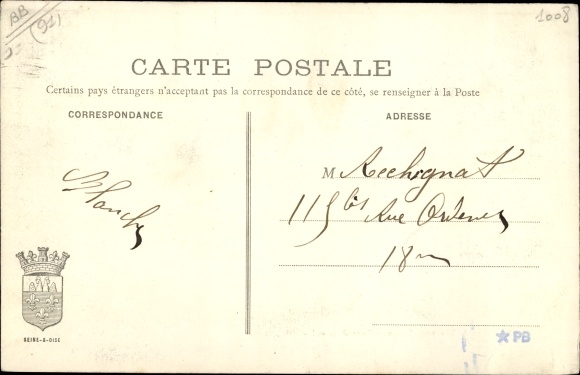 BB
(91)
1008
CARTE POSTALE
Certains pays étrangers n'acceptant pas la correspondance de ce côté, se renseigner à la Poste
CORRESPONDANCE
ADRESSE
M Rechignat
115 bis Rue Ordener
18m
SEINE-&-OISE
PB